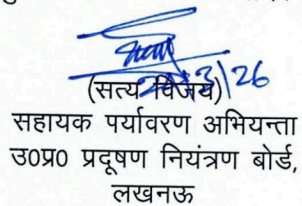 20/3/26
(सत्य विजय)
सहायक पर्यावरण अभियन्ता
उ०प्र० प्रदूषण नियंत्रण बोर्ड,
लखनऊ